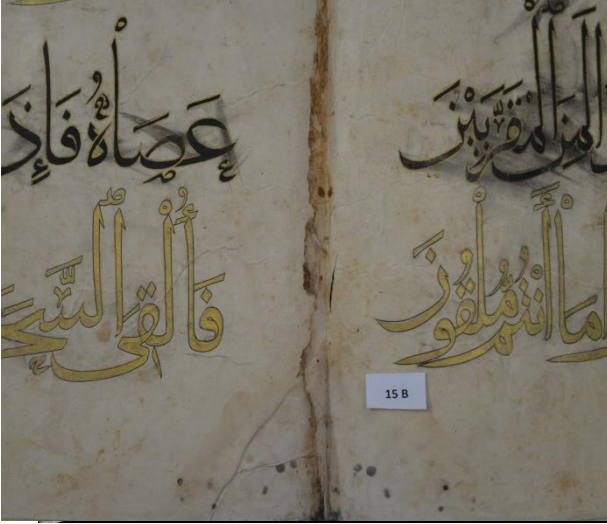 لَمِنَ الْمُقَرَّبِينَ
مَا أَنْتُمْ مُلْقُونَ
15 B
عَصَاهُ فَإِذَ
فَأُلْقِىَ السَّحَ